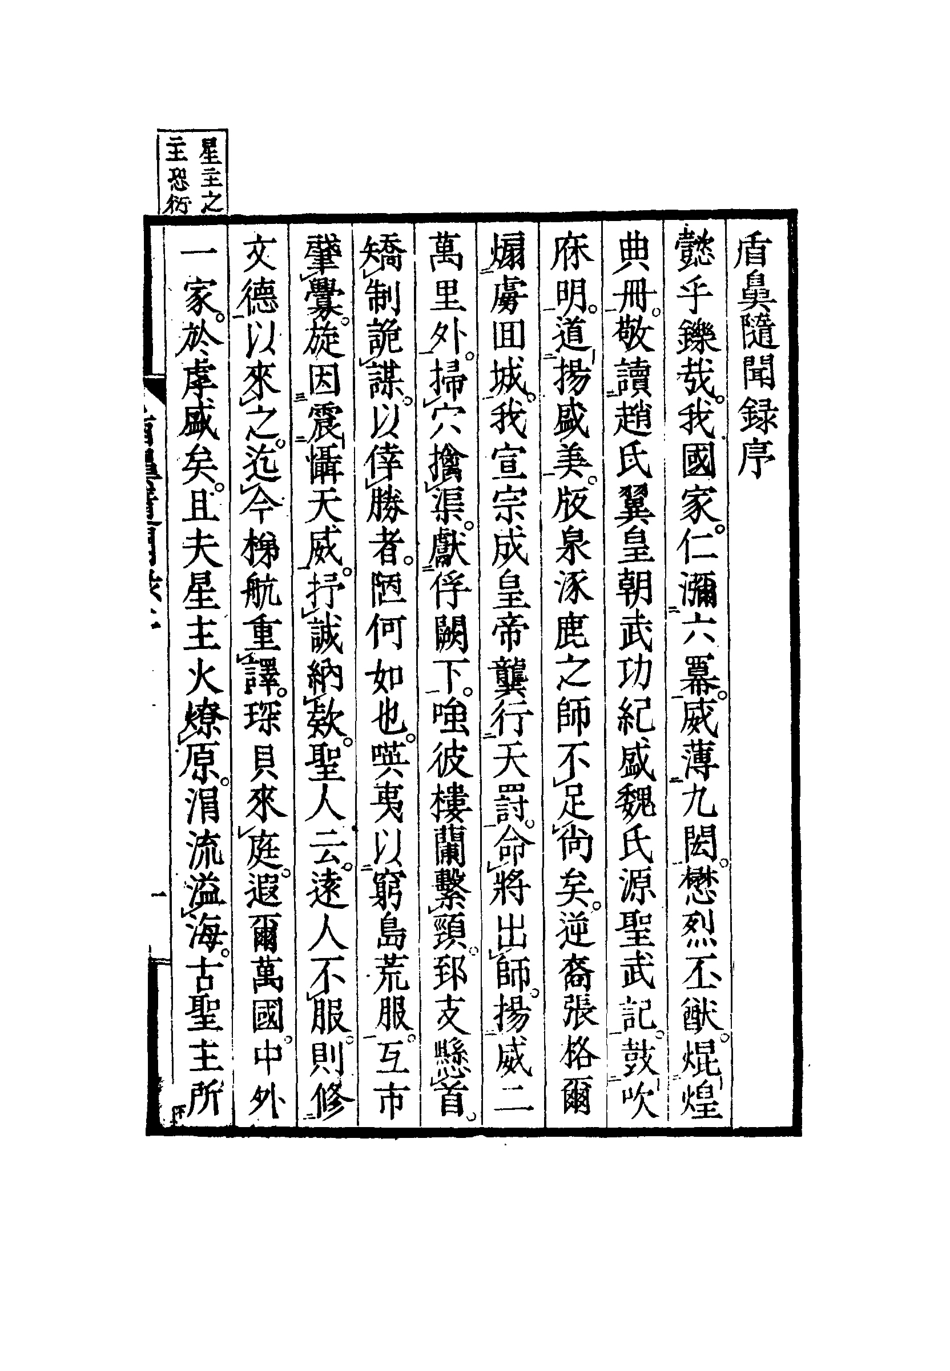 星主之
主恐衍
盾鼻隨聞錄序
懿乎鑠哉。我國家。仁瀰六冪。威薄九閎。懋烈丕猷。焜煌
典冊。敬讀趙氏翼皇朝武功紀盛魏氏源聖武記。鼓吹
庥明。道揚盛美。版泉涿鹿之師不足尙矣。逆裔張格爾
煽虜回城。我宣宗成皇帝龔行天罸。命將出師。揚威二
萬里外。掃穴擒渠。獻俘闕下。唯彼樓蘭繫頸。郅支懸首。
矯制詭謀。以倖勝者。陋何如也。暎夷以窮島荒服。互市
肇釁。旋因震懾天威。抒誠納欵。聖人云。遠人不服。則修
文德以來之。迄今梯航重譯。琛貝來庭。遐爾萬國。中外
一家。於虖盛矣。且夫星主火燎原。涓流溢海。古聖主所